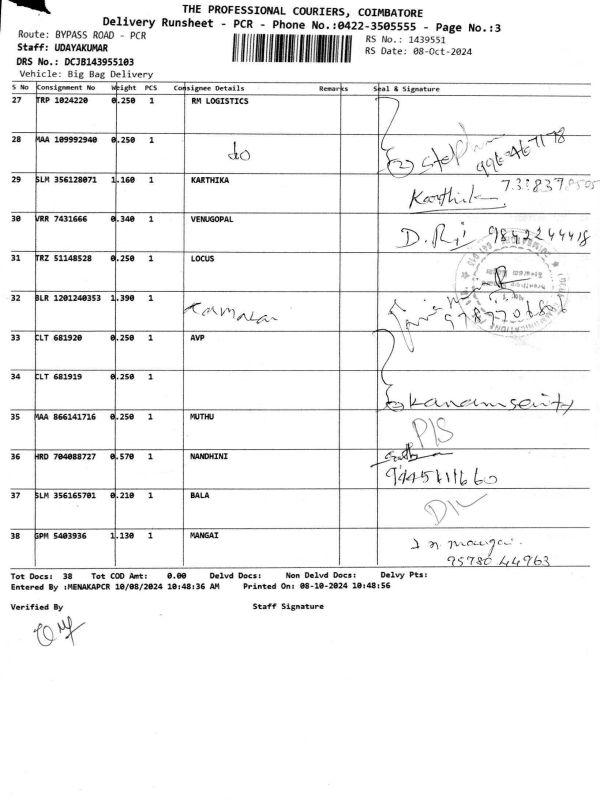 THE PROFESSIONAL COURIERS, COIMBATORE
Delivery Runsheet - PCR - Phone No.:0422-3505555 - Page No.:3
Route: BYPASS ROAD - PCR
RS No.: 1439551
Staff: UDAYAKUMAR
RS Date: 08-Oct-2024
DRS No.: DCJB143955103
Vehicle: Big Bag Delivery
S No Consignment No Weight PCS Consignee Details Remarks Seal & Signature
27 TRP 1024220 0.250 1 RM LOGISTICS
28 MAA 109992940 0.250 1
do
29 SLM 356128071 1.160 1 KARTHIKA
Karthika
30 VRR 7431666 0.340 1 VENUGOPAL
9842244418
31 TRZ 51148528 0.250 1 LOCUS
32 BLR 1201240353 1.390 1
33 CLT 681920 0.250 1 AVP
34 CLT 681919 0.250 1
35 MAA 866141716 0.250 1 MUTHU
36 HRD 704088727 0.570 1 NANDHINI
9445111660
37 SLM 356165701 0.210 1 BALA
38 GPM 5403936 1.130 1 MANGAI
95780 44963
Tot Docs: 38 Tot COD Amt: 0.00 Delvd Docs: Non Delvd Docs: Delvy Pts:
Entered By :MENAKAPCR 10/08/2024 10:48:36 AM Printed On: 08-10-2024 10:48:56
Verified By Staff Signature